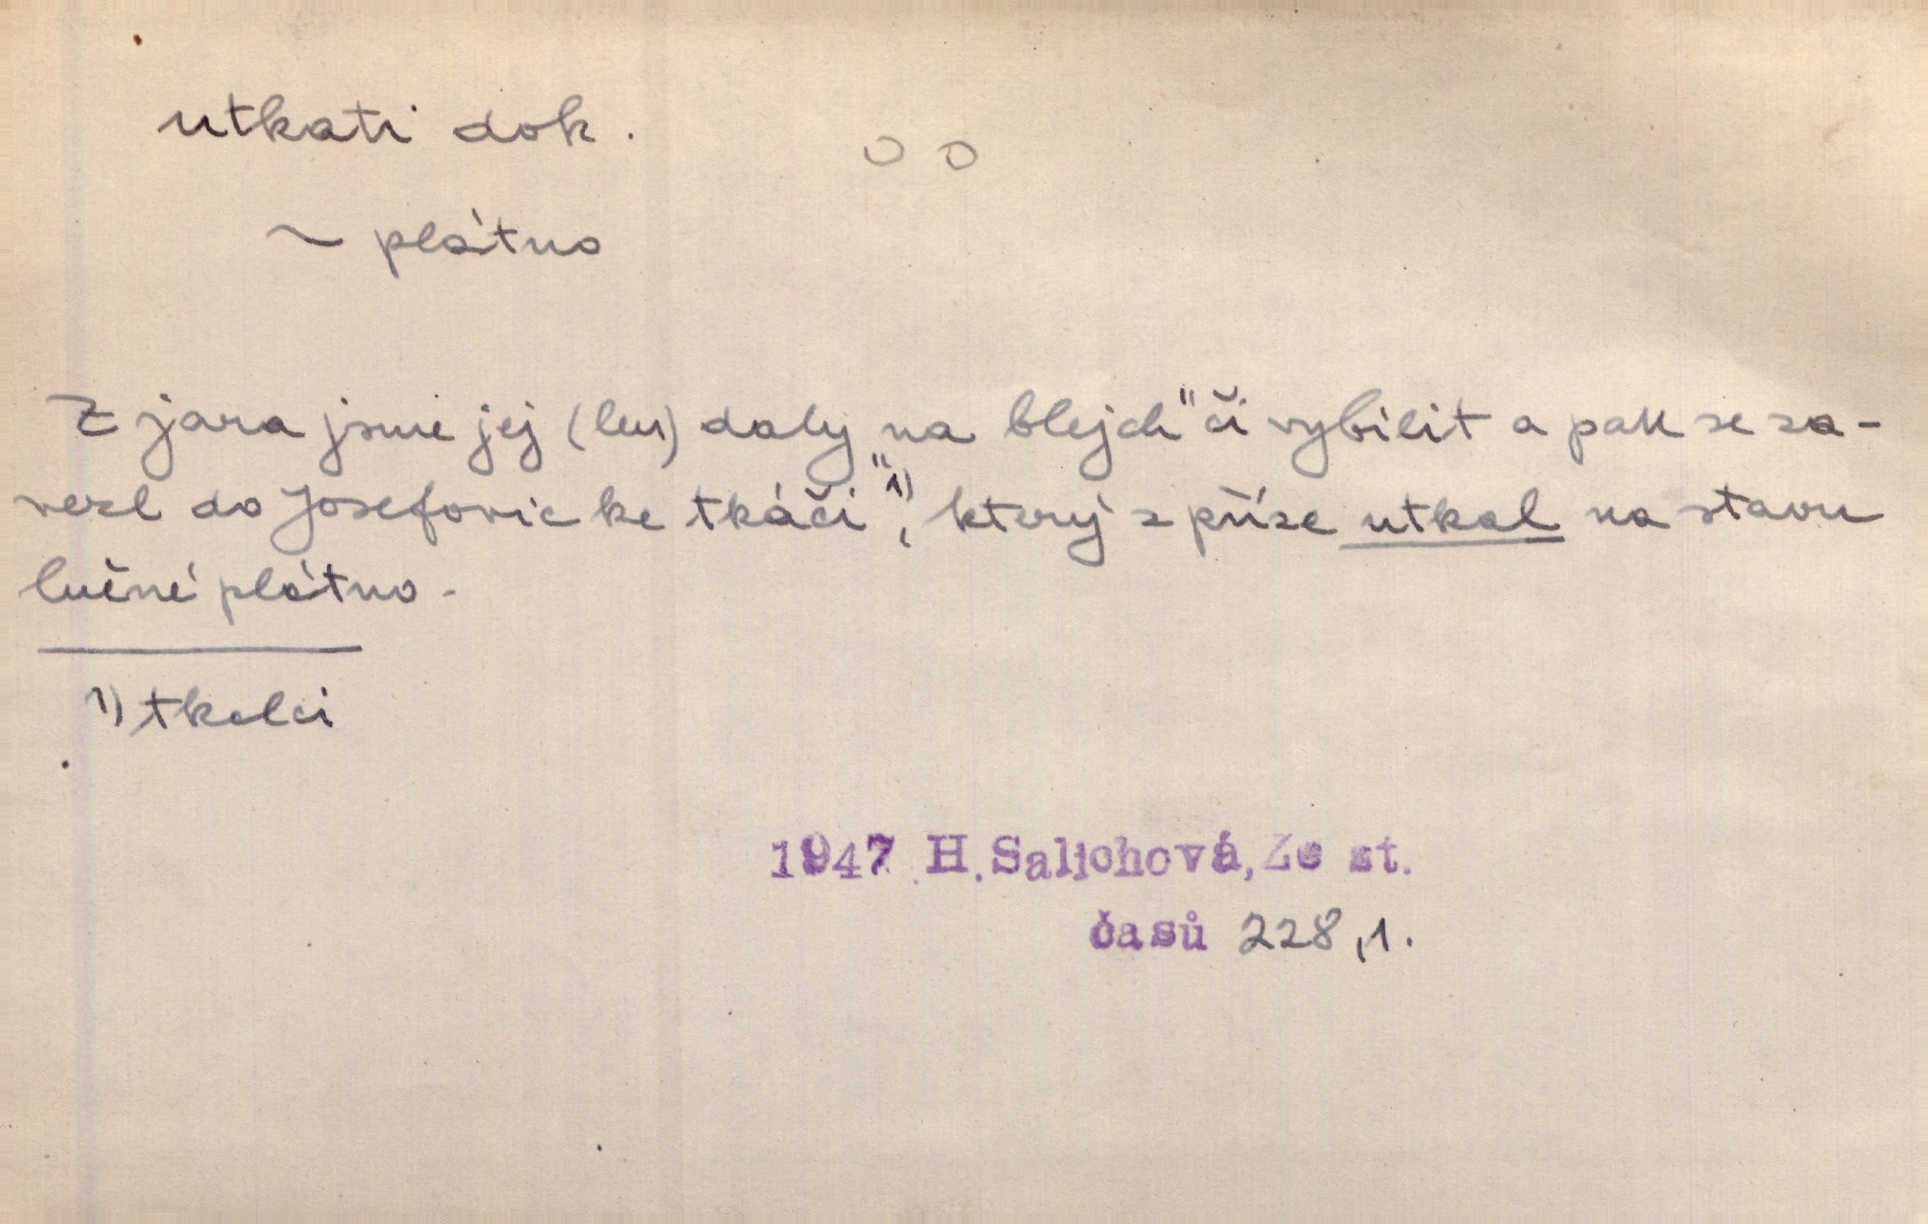 utkati dok.
~ plátno
Z jara jsme jej (len) daly „na blejch" či vybílit a pak se za-
vezl do Josefovic ke tkáči"1), který z příze utkal na stavu
lněné plátno.
1) tkalci
1947 H. Salichová, Ze st.
časů 228,1.